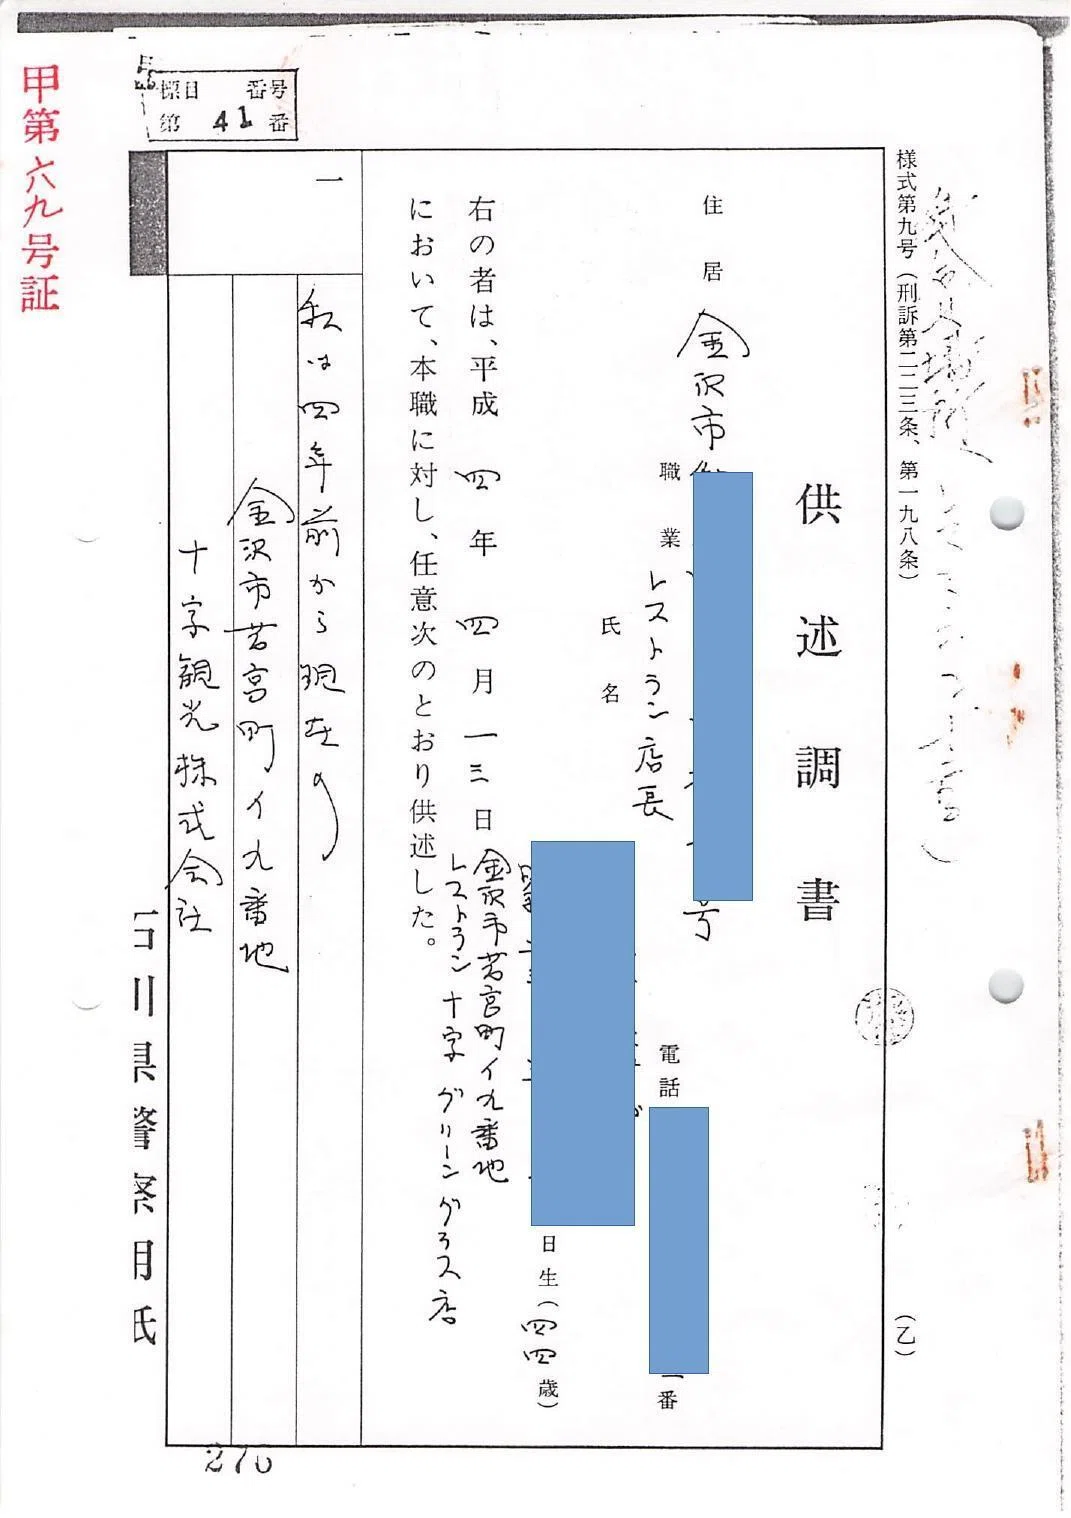 甲第六九号証
標目　番号
第 41 番
様式第九号（刑訴第二二三条、第一九八条）
（乙）
供述調書
住居　金沢市
号
職業　レストラン店長
電話
番
氏名
日生（四四歳）
右の者は、平成 四年 四月一三日 金沢市若宮町イ九番地
レストラン十字グリーングラス店
において、本職に対し、任意次のとおり供述した。
一
私は四年前から現在の
金沢市若宮町イ九番地
十字観光株式会社
石川県警察用紙
270